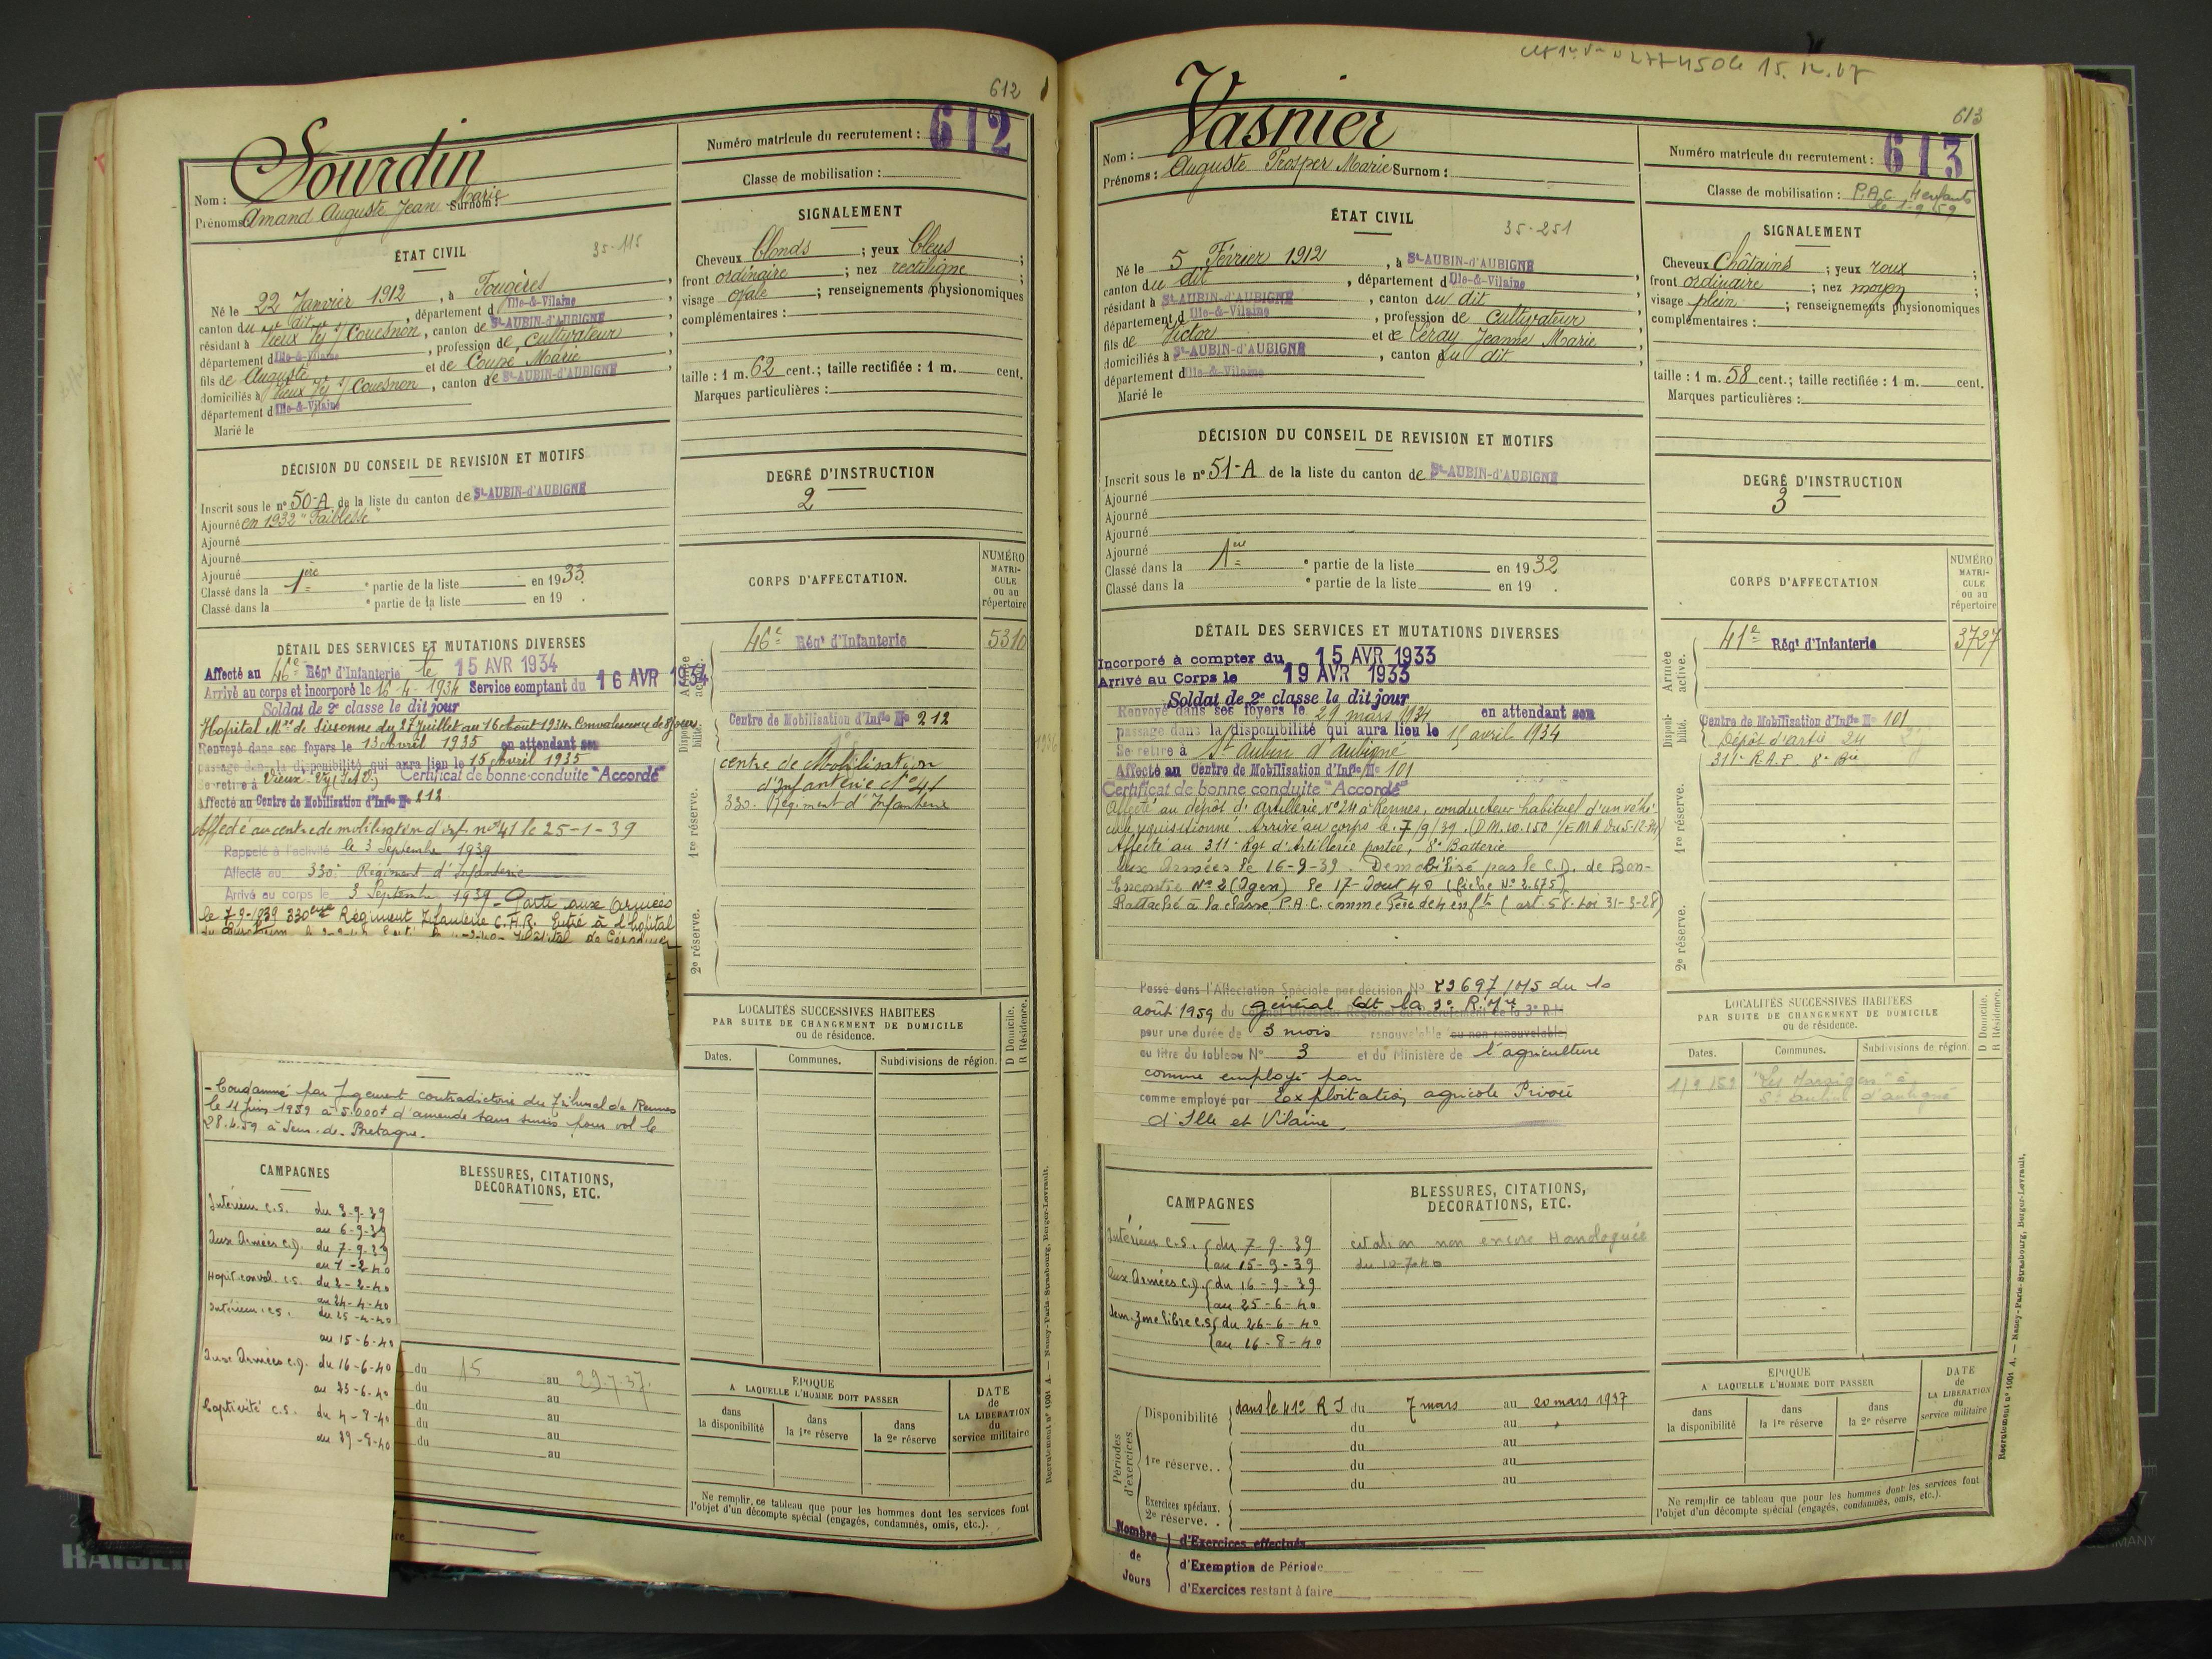 612
Sourdin
Nom :
Prénoms : Amand Auguste Jean Marie Surnom :
Numéro matricule du recrutement : 612
Classe de mobilisation :
ÉTAT CIVIL
35-115
Né le 22 Janvier 1912, à Fougères,
canton du dit, département d Ille-&-Vilaine
résidant à Vieux Vy s/ Couesnon, canton de St-AUBIN-d'AUBIGNÉ
département d Ille-&-Vilaine, profession de cultivateur
fils de Auguste et de Coupé Marie
domiciliés à Vieux Vy s/ Couesnon, canton de St-AUBIN-d'AUBIGNÉ
département d Ille-&-Vilaine
Marié le
SIGNALEMENT
Cheveux blonds ; yeux bleus ;
front ordinaire ; nez rectiligne ;
visage ovale ; renseignements physionomiques
complémentaires :
taille : 1 m. 62 cent. ; taille rectifiée : 1 m. cent.
Marques particulières :
DÉCISION DU CONSEIL DE REVISION ET MOTIFS
Inscrit sous le n° 50-A de la liste du canton de St-AUBIN-d'AUBIGNÉ
Ajourné en 1932 "Faiblesse"
Ajourné
Ajourné
Ajourné
Classé dans la 1ère e partie de la liste en 1933.
Classé dans la e partie de la liste en 19 .
DEGRÉ D'INSTRUCTION
2
DÉTAIL DES SERVICES ET MUTATIONS DIVERSES
Affecté au 46e Régt d'Infanterie le 15 AVR 1934
Arrivé au corps et incorporé le 16-4-1934 Service comptant du 16 AVR 1934
Soldat de 2e classe le dit jour
Hopital Mre de Sissonne du 27 Juillet au 16 Août 1934. Convalescence de 8 jours.
Renvoyé dans ses foyers le 13 Avril 1935 en attendant son
passage dans la disponibilité qui aura lieu le 15 Avril 1935
Se retire à Vieux-Vy (I.et V.) Certificat de bonne conduite "Accordé"
Affecté au Centre de Mobilisation d'Infie No 212
Affecté au centre de mobilisation d'inf. n° 41 le 25-1-39
Rappelé à l'activité le 3 Septembre 1939
Affecté au 330e Régiment d'Infanterie
Arrivé au corps le 3 Septembre 1939 - Parti aux Armées
le 7-9-1939 330ème Régiment Infanterie C.H.R. Entré à l'hôpital
- Condamné par Jugement contradictoire du Tribunal de Rennes
le 11 Juin 1959 à 5.000f d'amende sans sursis pour vol le
28.4.59 à Sens-de-Bretagne.
CORPS D'AFFECTATION.
NUMÉRO MATRICULE ou au répertoire
Armée active.
46e Régt d'Infanterie 5310
Disponibilité.
Centre de Mobilisation d'Infie No 212
1re réserve.
centre de Mobilisation
d'Infanterie N° 41
330e Régiment d'Infanterie
2e réserve.
LOCALITÉS SUCCESSIVES HABITÉES
PAR SUITE DE CHANGEMENT DE DOMICILE
ou de résidence.
Dates. Communes. Subdivisions de région. D Domicile. R Résidence.
CAMPAGNES
Intérieur C.S. du 3-9-39
au 6-9-39
Aux Armées C.D. du 7-9-39
au 1-2-40
Hopit. conval. C.S. du 2-2-40
au 24-4-40
Intérieur C.S. du 25-4-40
au 15-6-40
Aux Armées C.D. du 16-6-40
au 25-6-40
Captivité C.S. du 4-8-40
au 29-8-40
BLESSURES, CITATIONS,
DÉCORATIONS, ETC.
du 15 au 29-7-37.
du au
du au
du au
du au
au
ÉPOQUE
A LAQUELLE L'HOMME DOIT PASSER
dans la disponibilité dans la 1re réserve dans la 2e réserve
DATE de LA LIBÉRATION du service militaire
Ne remplir ce tableau que pour les hommes dont les services font
l'objet d'un décompte spécial (engagés, condamnés, omis, etc.).
Recrutement n° 1001 A. — Nancy-Paris-Strasbourg, Berger-Levrault.
15.12.67
613
Vasnier
Nom :
Prénoms : Auguste Prosper Marie Surnom :
Numéro matricule du recrutement : 613
Classe de mobilisation : P.A.C. 4 enfants
le 1-9-59
ÉTAT CIVIL
35-251
Né le 5 Février 1912, à St-AUBIN-d'AUBIGNÉ
canton du dit, département d Ille-&-Vilaine,
résidant à St-AUBIN-d'AUBIGNÉ, canton du dit
département d Ille-&-Vilaine, profession de cultivateur
fils de Victor et de Léray Jeanne Marie
domiciliés à St-AUBIN-d'AUBIGNÉ, canton du dit
département d Ille-&-Vilaine
Marié le
SIGNALEMENT
Cheveux Châtains ; yeux roux ;
front ordinaire ; nez moyen ;
visage plein ; renseignements physionomiques
complémentaires :
taille : 1 m. 58 cent. ; taille rectifiée : 1 m. cent.
Marques particulières :
DÉCISION DU CONSEIL DE REVISION ET MOTIFS
Inscrit sous le n° 51-A de la liste du canton de St-AUBIN-d'AUBIGNÉ
Ajourné
Ajourné
Ajourné
Ajourné
Classé dans la 1ère e partie de la liste en 1932
Classé dans la e partie de la liste en 19 .
DEGRÉ D'INSTRUCTION
3
DÉTAIL DES SERVICES ET MUTATIONS DIVERSES
Incorporé à compter du 15 AVR 1933
Arrivé au Corps le 19 AVR 1933
Soldat de 2e classe le dit jour
Renvoyé dans ses foyers le 29 mars 1934 en attendant son
passage dans la disponibilité qui aura lieu le 15 avril 1934
Se retire à St Aubin d'Aubigné
Affecté au Centre de Mobilisation d'Infie No 101
Certificat de bonne conduite "Accordé"
Affecté au dépôt d'artillerie N° 24 à Rennes, conducteur habituel d'un véhi-
cule réquisitionné. Arrivé au corps le 7/9/39.
Affecté au 311e Rgt d'Artillerie portée, 8e Batterie
Aux Armées le 16-9-39. Démobilisé par le C.D. de Bon-
Encontre N° 2 (Agen) le 17-Aout 40 (fiche N° 2.675)
Rattaché à la classe P.A.C. comme Père de 4 enfts (art. 58. Loi 31-3-28)
Passé dans l'Affectation Spéciale par décision No 23697/MS du 10
août 1959 du général Cdt la 3e R.M
pour une durée de 3 mois renouvelable ou non renouvelable,
au titre du tableau No 3 et du Ministère de l'agriculture
comme employé par
comme employé par Exploitation agricole Privée
d'Ille et Vilaine.
CORPS D'AFFECTATION
NUMÉRO MATRICULE ou au répertoire
Armée active.
41e Régt d'Infanterie 3727
Disponibilité.
Centre de Mobilisation d'Infie No 101
Dépôt d'artie 24
311e R.A.P. 8e Bie
1re réserve.
2e réserve.
LOCALITÉS SUCCESSIVES HABITÉES
PAR SUITE DE CHANGEMENT DE DOMICILE
ou de résidence.
Dates. Communes. Subdivisions de région. D Domicile. R Résidence.
1/9/59 "Les à
St Aubin d'Aubigné
CAMPAGNES
Intérieur C.S. du 7-9-39
au 15-9-39
Aux Armées C.D. du 16-9-39
au 25-6-40
Sem. zone libre C.S. du 26-6-40
au 16-8-40
BLESSURES, CITATIONS,
DÉCORATIONS, ETC.
citation non encore Homologuée
du 10-7-40
Périodes d'exercices.
Disponibilité dans le 41e R I du 7 mars au 20 mars 1937
du au
1re réserve. . du au
du au
du au
Exercices spéciaux.
2e réserve. .
Nombre de Jours
d'Exercices effectués
d'Exemption de Période
d'Exercices restant à faire
ÉPOQUE
A LAQUELLE L'HOMME DOIT PASSER
dans la disponibilité dans la 1re réserve dans la 2e réserve
DATE de LA LIBÉRATION du service militaire
Ne remplir ce tableau que pour les hommes dont les services font
l'objet d'un décompte spécial (engagés, condamnés, omis, etc.).
Recrutement n° 1001 A. — Nancy-Paris-Strasbourg, Berger-Levrault.